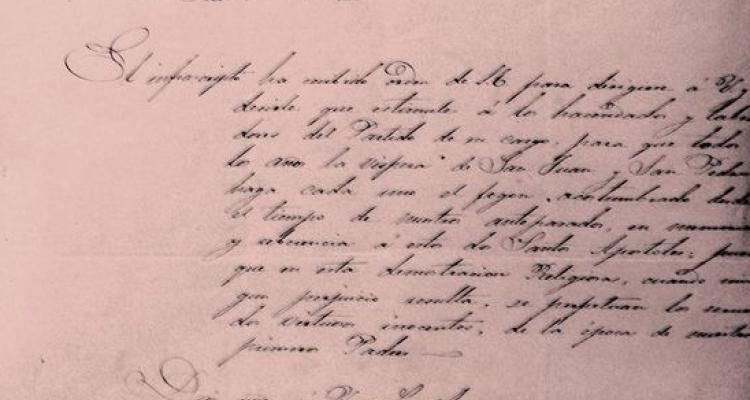 El infrascripto ha recibido orden de S.E. para dirigirse á V. y
decirle que estimule á los hacendados y labra
dores del Partido de su cargo, para que todos
los años la víspera de San Juan y San Pedro
haga cada uno el fogon acostumbrado desde
el tiempo de nuestros antepasados, en memoria
y reverencia á estos dos Santos Apostoles; pues
que en esta demostracion Religiosa, cuando
que prejuicio resulta, se perpetuan los
dos virtuosos inocentes, de la época de nuestros
primeros Padres